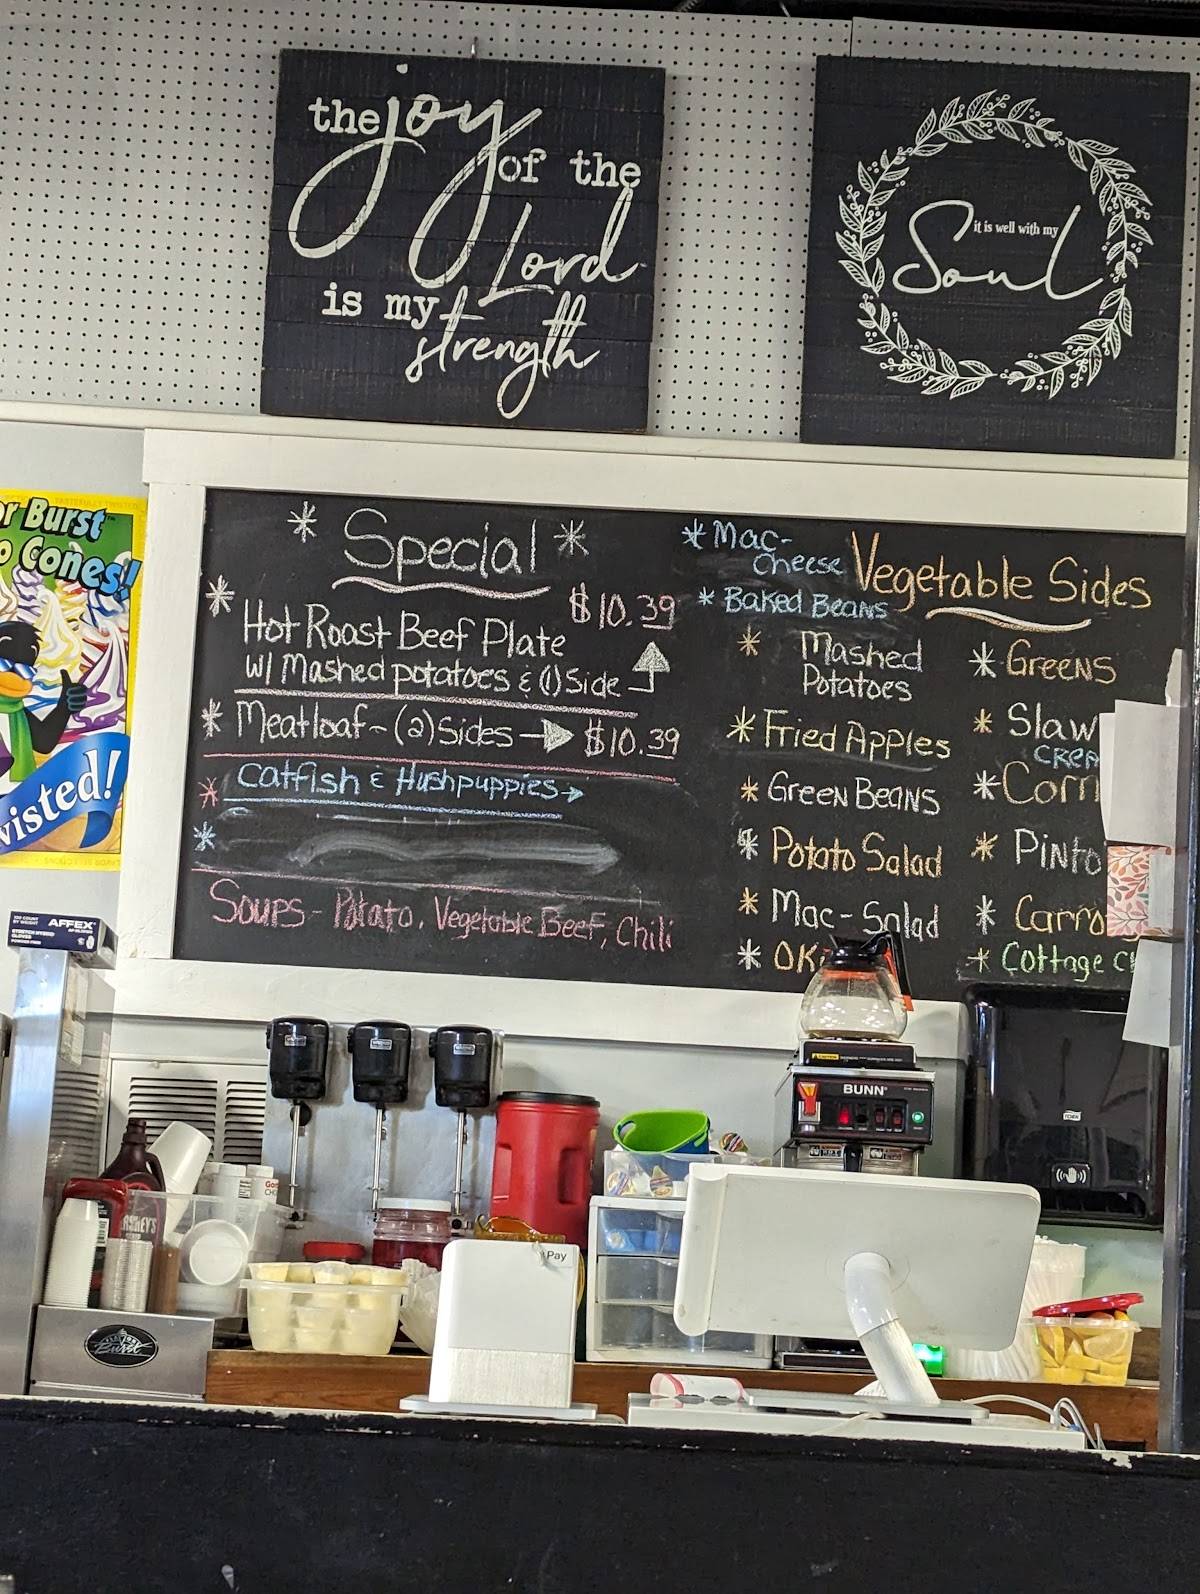 the joy
of the
Lord
is my
strength
it is well with my
Soul
Burst
Cones!
* Special *
* Hot Roast Beef Plate $10.39
w/ Mashed potatoes & (1) Side
* Meatloaf - (2) Sides → $10.39
* Catfish & Hushpuppies →
*
Soups - Potato, Vegetable Beef, Chili
* Mac-
Cheese
* Baked Beans
Vegetable Sides
* Mashed
Potatoes
* Fried Apples
* Green Beans
* Potato Salad
* Mac-Salad
* Greens
* Slaw
* Corn
* Pinto
* Cottage
AFFEX
BUNN
Pay
Burst